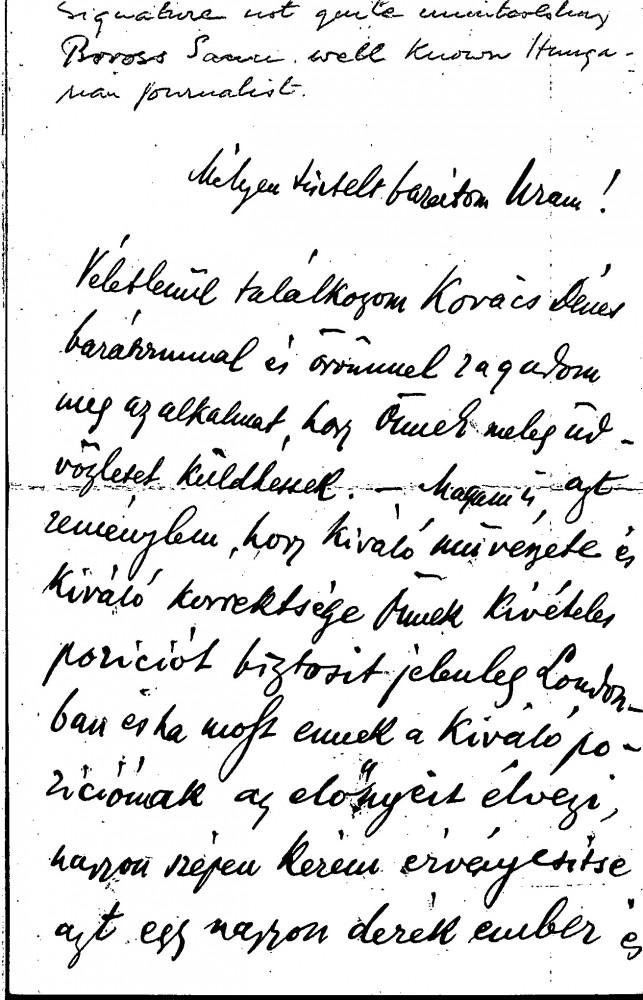 Signature not quite
Boross well known Hunga-
rian journalist.
Mélyen tisztelt barátom Uram!
Véletlenül találkozom Kovács Dénes
barátommal és örömmel ragadom
meg az alkalmat, hogy Önnek meleg üd-
vözletet küldhessek. — Magam is azt
reménylem, hogy kiváló művészete és
kiváló korrektsége Önnek kivételes
poziciót biztosit jelenleg London-
ban és ha most ennek a kiváló po-
ziciónak az előnyeit élvezi,
nagyon szépen kérem érvényesitse
azt egy nagyon derék ember és